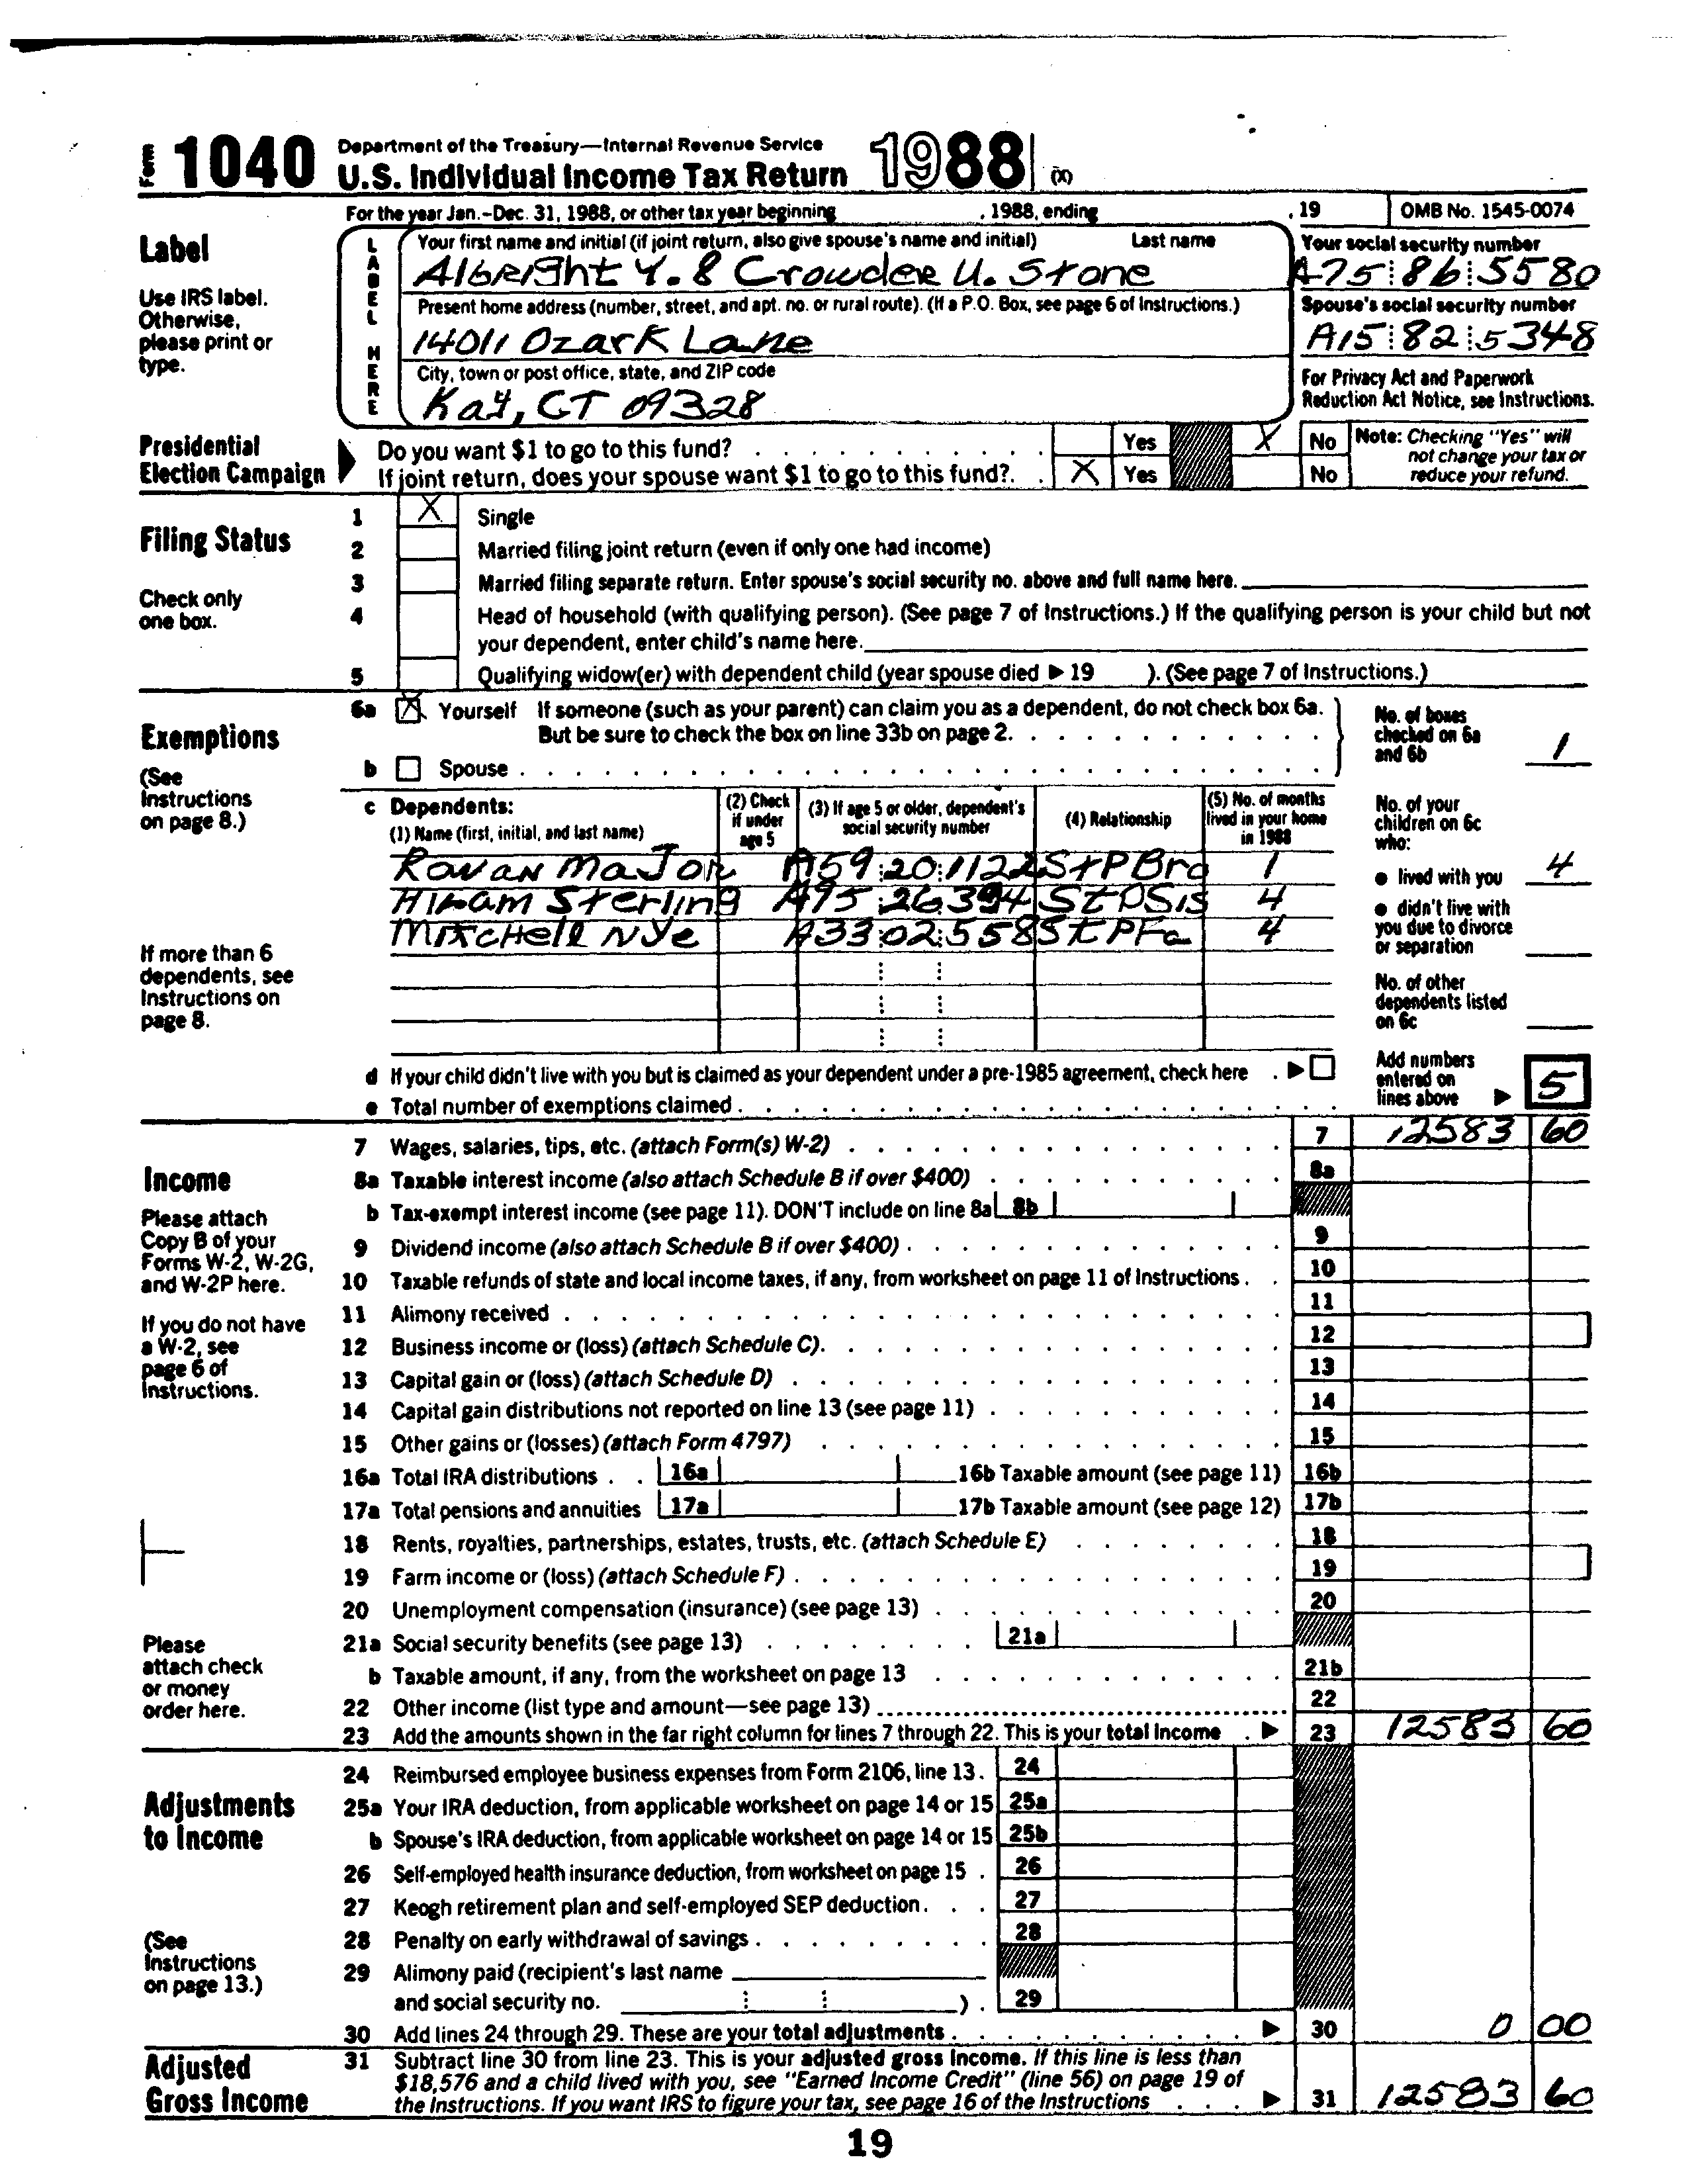 Form 1040 Department of the Treasury—Internal Revenue Service
U.S. Individual Income Tax Return 1988 (X)
For the year Jan.-Dec. 31, 1988, or other tax year beginning , 1988, ending , 19 OMB No. 1545-0074
Label
Use IRS label. Otherwise, please print or type.
LABEL HERE
Your first name and initial (if joint return, also give spouse's name and initial) Last name
Albright Y. & Crowder U. Stone
Your social security number
A75 86 5580
Present home address (number, street, and apt. no. or rural route). (If a P.O. Box, see page 6 of Instructions.)
14011 Ozark Lane
Spouse's social security number
A15 82 5348
City, town or post office, state, and ZIP code
Kay, CT 09328
For Privacy Act and Paperwork Reduction Act Notice, see Instructions.
Presidential Election Campaign
Do you want $1 to go to this fund? Yes X No
If joint return, does your spouse want $1 to go to this fund? X Yes No
Note: Checking "Yes" will not change your tax or reduce your refund.
Filing Status
Check only one box.
1 X Single
2 Married filing joint return (even if only one had income)
3 Married filing separate return. Enter spouse's social security no. above and full name here.
4 Head of household (with qualifying person). (See page 7 of Instructions.) If the qualifying person is your child but not
your dependent, enter child's name here.
5 Qualifying widow(er) with dependent child (year spouse died ▶ 19 ). (See page 7 of Instructions.)
Exemptions
(See Instructions on page 8.)
6a X Yourself If someone (such as your parent) can claim you as a dependent, do not check box 6a.
But be sure to check the box on line 33b on page 2.
b Spouse
No. of boxes checked on 6a and 6b 1
c Dependents:
(1) Name (first, initial, and last name) (2) Check if under age 5 (3) If age 5 or older, dependent's social security number (4) Relationship (5) No. of months lived in your home in 1988
Rowan Major A59 20 1122 StPBro 1
Hiram Sterling A95 26 394 StPSis 4
Mitchell Nye A33 02 558 StPFa 4
If more than 6 dependents, see Instructions on page 8.
No. of your children on 6c who:
● lived with you 4
● didn't live with you due to divorce or separation
No. of other dependents listed on 6c
d If your child didn't live with you but is claimed as your dependent under a pre-1985 agreement, check here ▶
e Total number of exemptions claimed
Add numbers entered on lines above ▶ 5
Income
Please attach Copy B of your Forms W-2, W-2G, and W-2P here.
If you do not have a W-2, see page 6 of Instructions.
Please attach check or money order here.
7 Wages, salaries, tips, etc. (attach Form(s) W-2) 7 12583 60
8a Taxable interest income (also attach Schedule B if over $400) 8a
b Tax-exempt interest income (see page 11). DON'T include on line 8a 8b
9 Dividend income (also attach Schedule B if over $400) 9
10 Taxable refunds of state and local income taxes, if any, from worksheet on page 11 of Instructions 10
11 Alimony received 11
12 Business income or (loss) (attach Schedule C) 12
13 Capital gain or (loss) (attach Schedule D) 13
14 Capital gain distributions not reported on line 13 (see page 11) 14
15 Other gains or (losses) (attach Form 4797) 15
16a Total IRA distributions 16a 16b Taxable amount (see page 11) 16b
17a Total pensions and annuities 17a 17b Taxable amount (see page 12) 17b
18 Rents, royalties, partnerships, estates, trusts, etc. (attach Schedule E) 18
19 Farm income or (loss) (attach Schedule F) 19
20 Unemployment compensation (insurance) (see page 13) 20
21a Social security benefits (see page 13) 21a
b Taxable amount, if any, from the worksheet on page 13 21b
22 Other income (list type and amount—see page 13) 22
23 Add the amounts shown in the far right column for lines 7 through 22. This is your total income ▶ 23 12583 60
Adjustments to Income
(See Instructions on page 13.)
24 Reimbursed employee business expenses from Form 2106, line 13. 24
25a Your IRA deduction, from applicable worksheet on page 14 or 15 25a
b Spouse's IRA deduction, from applicable worksheet on page 14 or 15 25b
26 Self-employed health insurance deduction, from worksheet on page 15 26
27 Keogh retirement plan and self-employed SEP deduction 27
28 Penalty on early withdrawal of savings 28
29 Alimony paid (recipient's last name
and social security no. ) 29
30 Add lines 24 through 29. These are your total adjustments ▶ 30 0 00
Adjusted Gross Income
31 Subtract line 30 from line 23. This is your adjusted gross income. If this line is less than
$18,576 and a child lived with you, see "Earned Income Credit" (line 56) on page 19 of
the Instructions. If you want IRS to figure your tax, see page 16 of the Instructions ▶ 31 12583 60
19